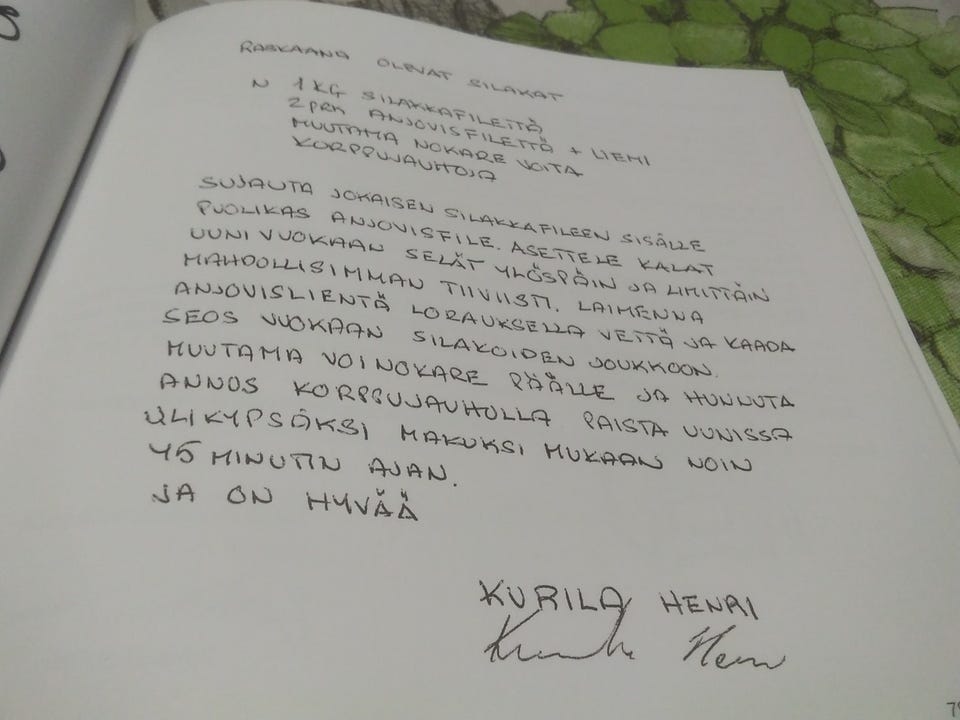 RASKAANA OLEVAT SILAKAT
N 1 KG SILAKKAFILEITÄ
2 PRK ANJOVISFILETTÄ + LIEMI
MUUTAMA NOKARE VOITA
KORPPUJAUHOJA
SUJAUTA JOKAISEN SILAKKAFILEEN SISÄLLE
PUOLIKAS ANJOVISFILE. ASETTELE KALAT
UUNIVUOKAAN SELÄT YLÖSPÄIN JA LIMITTÄIN
MAHDOLLISIMMAN TIIVIISTI. LAIMENNA
ANJOVISLIENTÄ LORAUKSELLA VETTÄ JA KAADA
SEOS VUOKAAN SILAKOIDEN JOUKKOON.
MUUTAMA VOINOKARE PÄÄLLE JA HUNNUTA
ANNOS KORPPUJAUHOLLA PAISTA UUNISSA
YLIKYPSÄKSI MAKUKSI MUKAAN NOIN
45 MINUTIN AJAN.
JA ON HYVÄÄ
KURILA HENRI